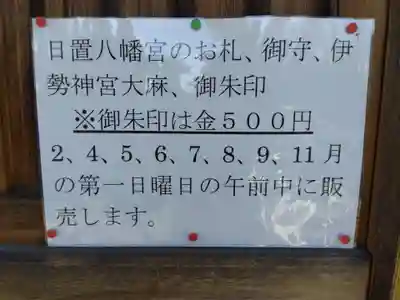 日置八幡宮のお札、御守、伊
勢神宮大麻、御朱印
※御朱印は金５００円
2、4、5、6、7、8、9、11月
の第一日曜日の午前中に販
売します。